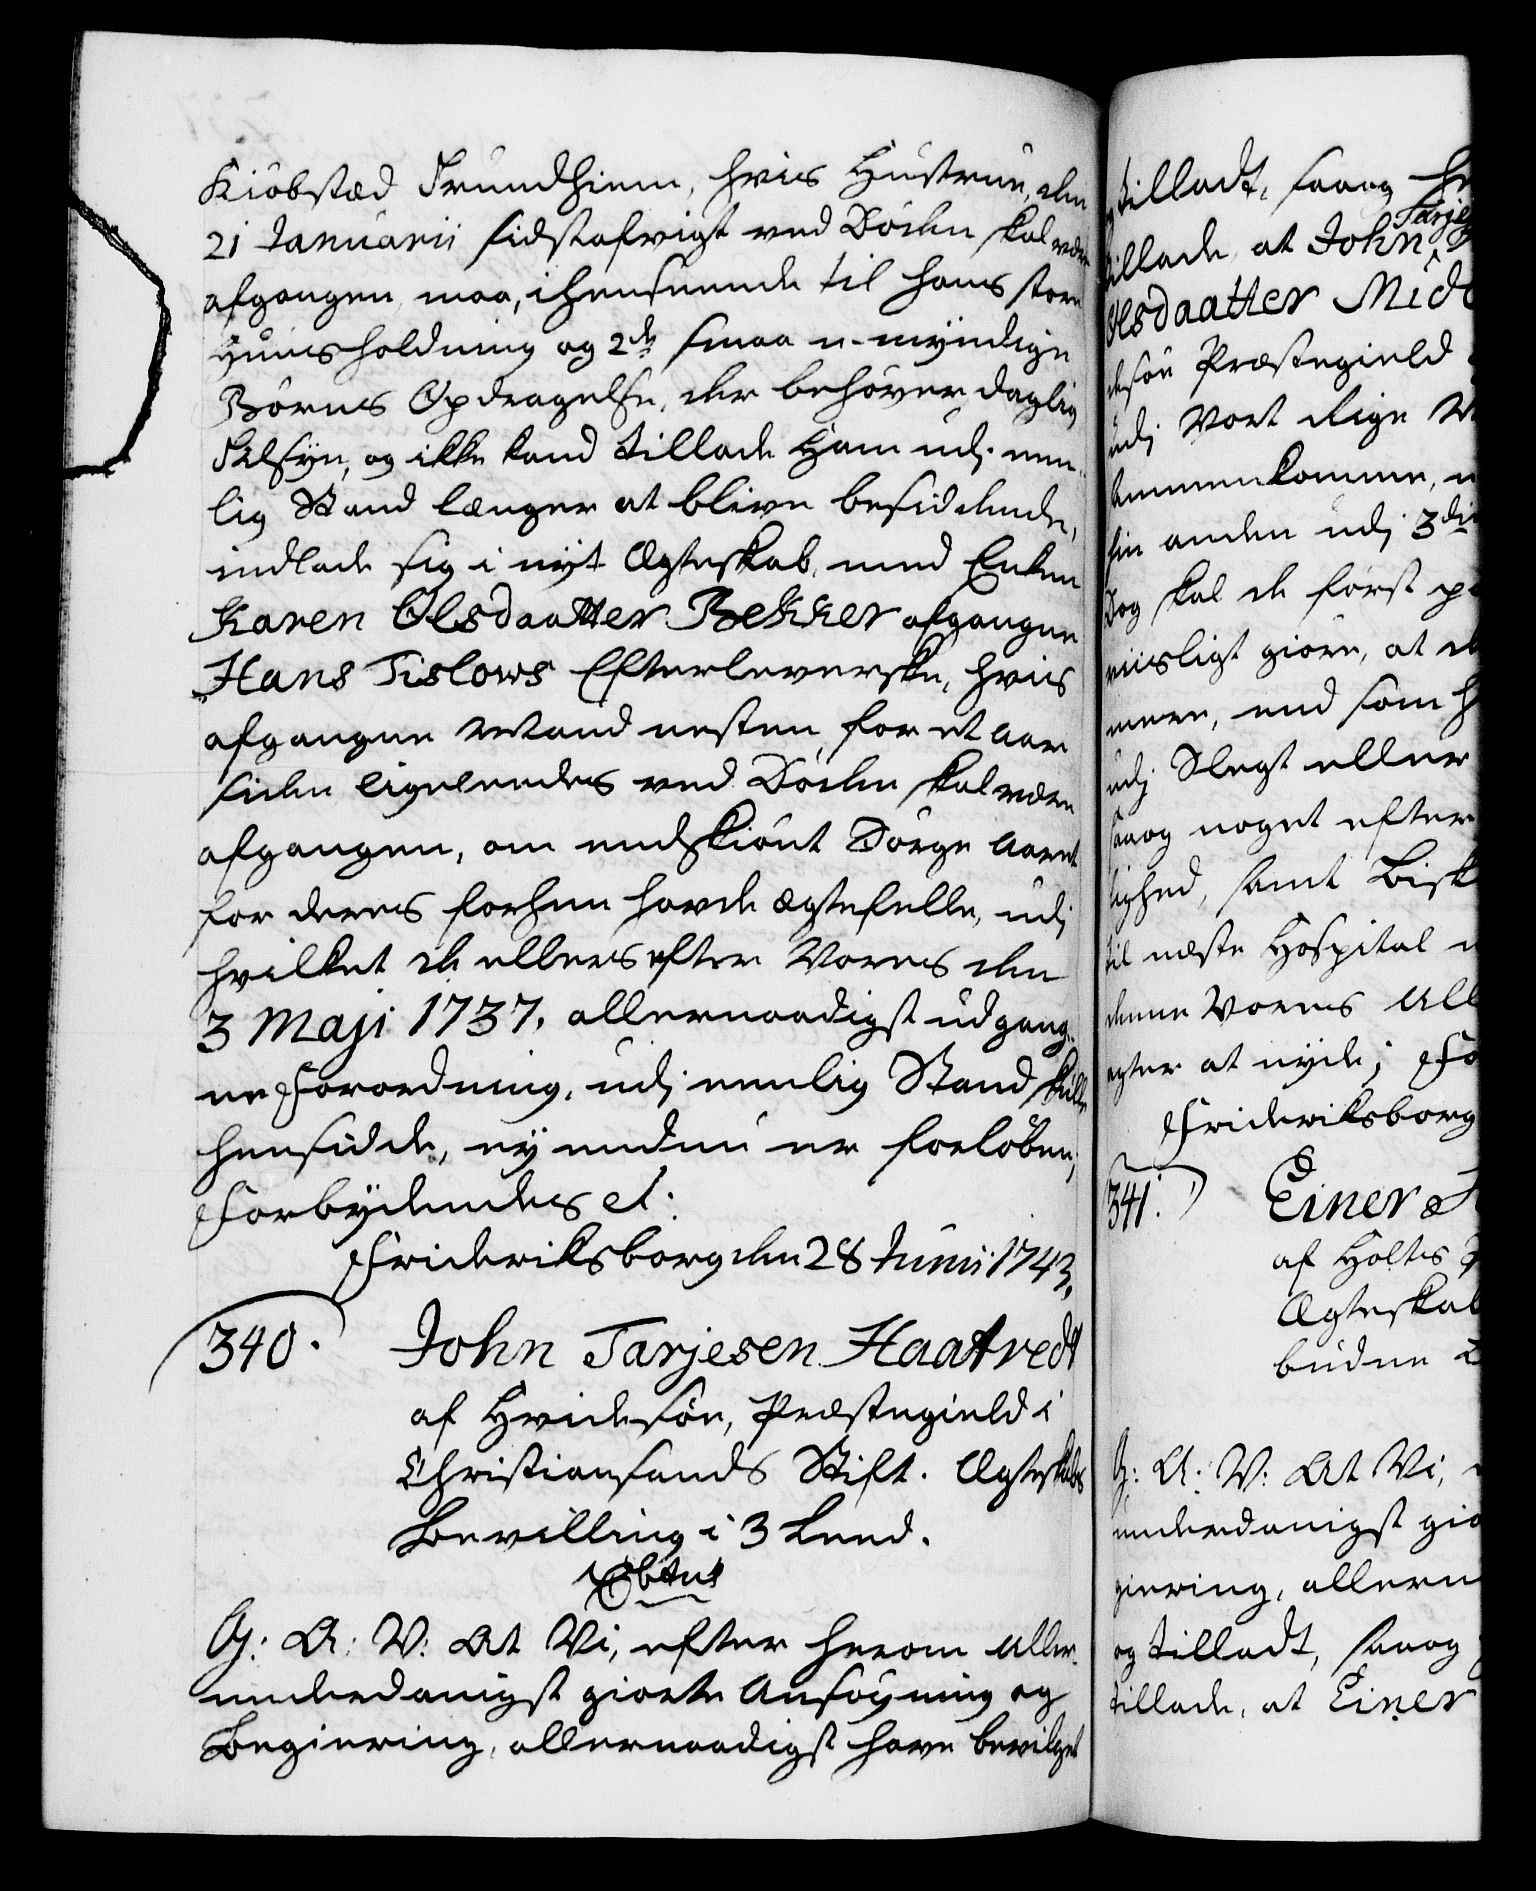 Kiøbstæd Trundhiem, hvis Hustrue, den
21 Januarii sidstafvigt ved Døden skal være
afgangen, maa, i henseende til hans store
Huusholdning og 2de smaa u-myndige
Børns Opdragelse, der behøver daglig
Tilsyn, og ikke kand tillade Ham udj een-
lig Stand længer at blive besiddende,
indlade sig i nyt Ægteskab, med Enken
Karen Olsdaatter Bekker afgangne
Hans Tislows Efterleverske, hvis
afgangne Mand nesten for et aar
siden ligeleedes ved Døden skal være
afgangen, om endskiønt Sørge Aaret
for deres forhen havde Ægtefelle, udj
hvilket de ellers efter Vores den
3 Maji 1737, allernaadigst udgang-
ne Forordning, udj eenlig Stand skulle
hensidde, ej endnu er forløben,
Forbydendes etc:
Frideriksborg den 28 Junii 1743.
340. John Tarjesen Haatvedt
af Hvidesøe, Præstegield i
Christiansands Stift. Ægteskabs
Bevilling i 3 Leed.
G: A: V: At Vi, efter herom Aller-
underdanigst giorte Ansøgning og
Begiering, allernaadigst have bevilget
tilladt, saaog
tillade, at John Tarje
Olsdaatter Mid
desøe Præstegield
udj Vort Rige
sammenkomme,
hin anden udj 3die
Dog skal de først
viisligt giøre, at de
mere, end som
udj Slegt eller
saaog noget efter
lighed, samt Bisk
til næste Hospital
denne Vores All
ægter at nyde; Fo
Frideriksborg
341. Einer
af Holtes
Ægteskab
budne
G: A: V: At Vi,
underdanigst gio
giering, allern
og tilladt, saaog
tillade, at Einer